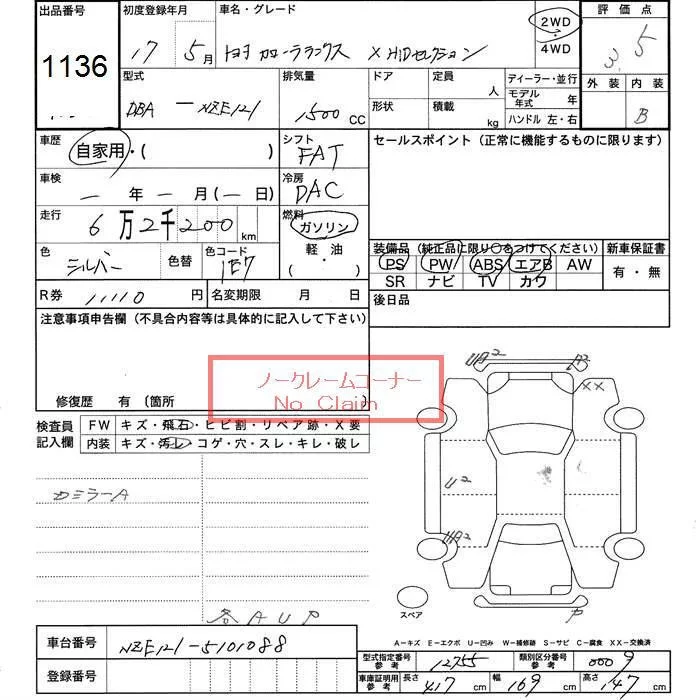 出品番号 初度登録年月 車名・グレード 評価点
1136
17 5月 トヨタ カローラランクス X HIDセレクション 2WD・4WD 3.5
型式 排気量 ドア 定員 人 ディーラー・並行 外装 内装
DBA - NZE121 1500 CC 形状 積載 kg モデル年式 年 B
ハンドル 左・右
車歴 自家用・( ) シフト FAT セールスポイント (正常に機能するものに限ります)
車検 - 年 - 月 (- 日) 冷房 DAC
走行 6万2千200km 燃料 ガソリン
軽油
・( )
色 シルバー 色替 色コード 1E7
装備品 (純正品に限り○をつけてください) 新車保証書
PS PW ABS エアB AW 有・無
SR ナビ TV カワ
R券 11110 円 名変期限 月 日 後日品
注意事項申告欄 (不具合内容等は具体的に記入して下さい)
ノークレームコーナー
No Claim
修復歴 有 (箇所 )
検査員記入欄 FW キズ・飛石・ヒビ割・リペア跡・X要
内装 キズ・汚レ・コゲ・穴・スレ・キレ・破レ
カミラーA
各AUP
UA2
XX
U2
UA2
P
スペア
A-キズ E-エクボ U-凹み W-補修跡 S-サビ C-腐食 XX-交換済
車台番号 NZE121-5101088
登録番号
型式指定番号 参考 12755 類別区分番号 参考 0009
車庫証明用 参考 長さ 417 cm 幅 169 cm 高さ 147 cm